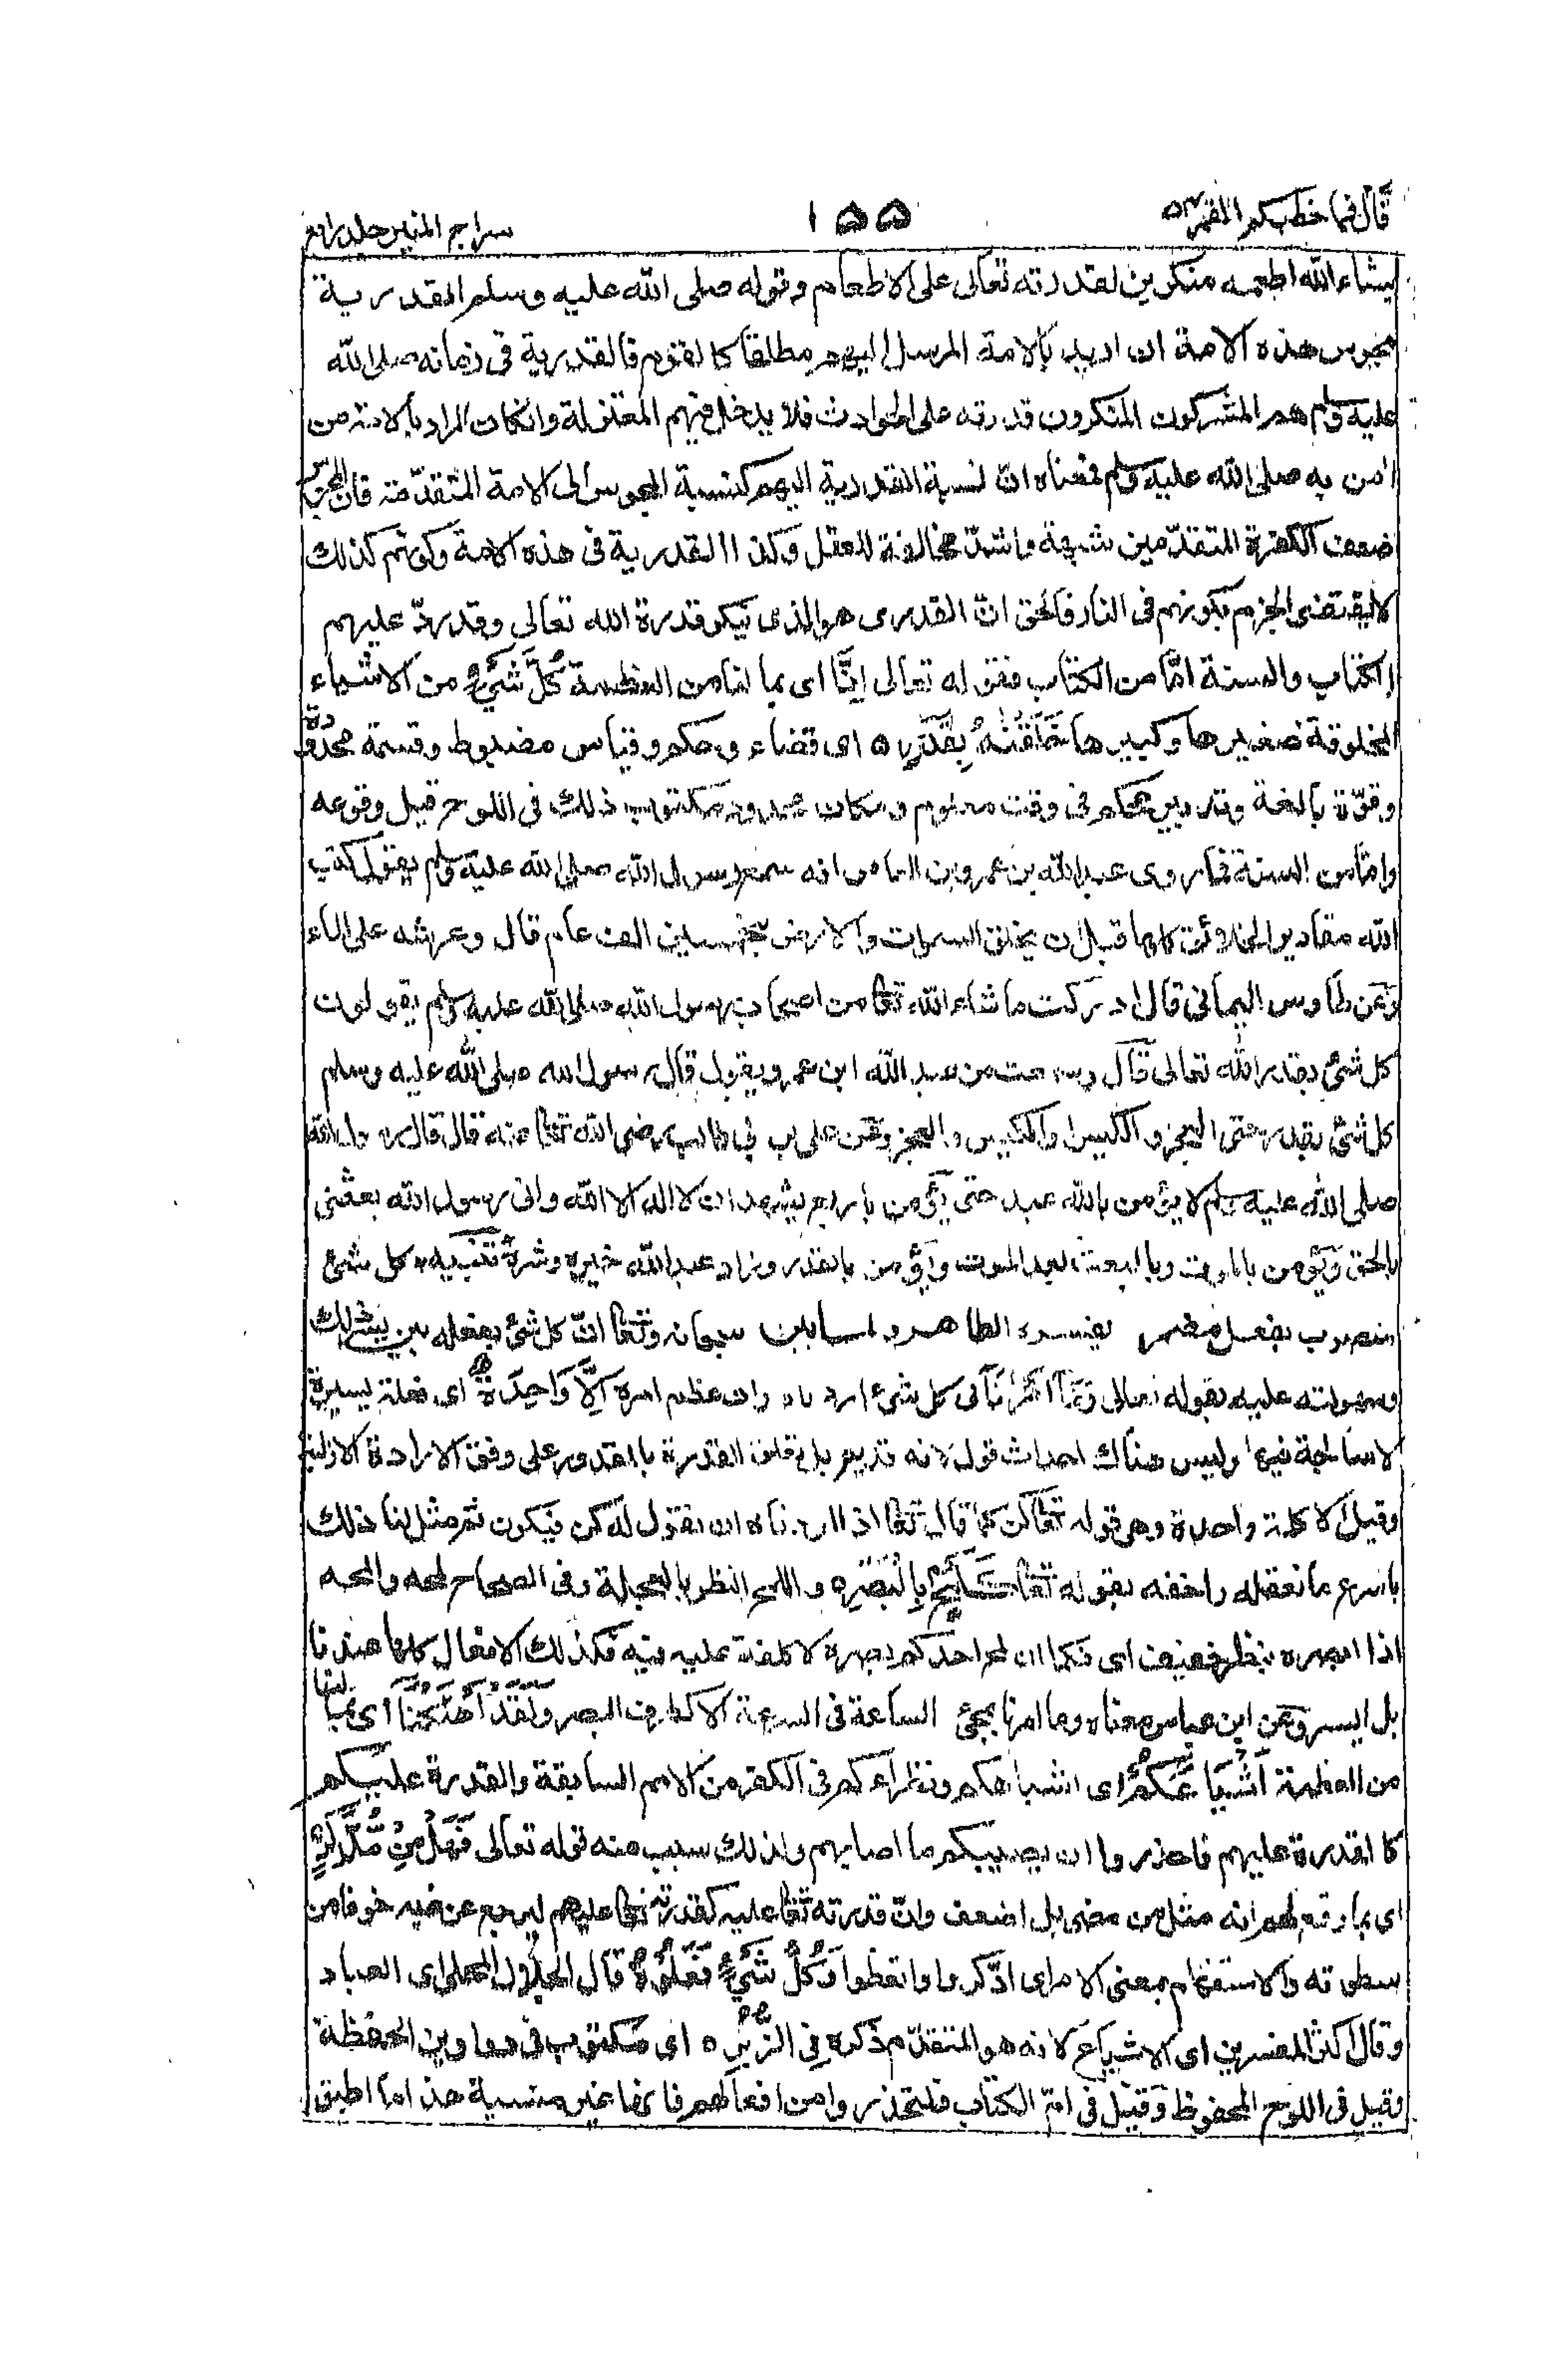 قال فما خطبكم القمر ٥٤
١٥٥
سراج المنير جلد رابع
يشاء الله اطعمه منكرين لقدرته تعالى على الاطعام وقوله صلى الله عليه وسلم القدرية
مجوس هذه الامة ان اريد بالامة المرسل اليهم مطلقا كالقوم فالقدرية فى زمانه صلى الله
عليه وسلم هم المشركون المنكرون قدرته على الحوادث فلا يدخل فيهم المعتزلة وانكان المراد بالامة من
اٰمن به صلى الله عليه وسلم فمعناه انّ نسبة القدرية اليهم كنسبة المجوس الى الامة المتقدّمة فانّ المجوس
اضعف الكفرة المتقدّمين شبهة واشدّ مخالفة للعقل وكذا القدرية فى هذه الامة وكونهم كذلك
لا يقتضى الجزم بكونهم فى النار فالحق انّ القدرى هو الذى ينكر قدرة الله تعالى وقد ردّ عليهم
الكتاب والسنة امّا من الكتاب فقوله تعالى اِنَّا اى بما لنا من العظمة كُلَّ شَيْءٍ من الاشياء
المخلوقة صغيرها وكبيرها خَلَقْنٰهُ بِقَدَرٍ ٥ اى قضاء وحكم وقياس مضبوط وقسمة محدودة
وقوّة بالغة وتدبير محكم فى وقت معلوم ومكان محدود مكتوب ذلك فى اللوح قبل وقوعه
وامّا من السنة فما روى عبدالله بن عمرو بن العاص انه سمع رسول الله صلى الله عليه وسلم يقول كتب
الله مقادير الخلائق كلها قبل ان يخلق السموات والارض بخمسين الف عام قال وعرشه على الماء
وعن طاوس اليمانى قال ادركت ما شاء الله تعا من اصحاب رسول الله صلى الله عليه وسلم يقولون
كل شئ بقدر الله تعالى قال وسمعت من عبد الله ابن عمر ويقول قال رسول الله صلى الله عليه وسلم
كل شئ بقدر حتى العجز والكيس او الكيس والعجز وعن على ب بى طالب رضى الله تعا عنه قال قال رسول الله
صلى الله عليه وسلم لا يؤمن بالله عبد حتى يؤمن باربع يشهد ان لا اله الا الله وانى رسول الله بعثنى
بالحق ويؤمن بالموت وبالبعث بعد الموت ويؤمن بالقدر وزاد عبدالله خيره وشره تنبيه كل شئ
منصوب بفعل مضمر يفسره الظاهر ولما بين سبحانه وتعا انّ كل شئ بفعله بين يسر ذلك
وسهولته عليه بقوله تعالى وَمَا اَمْرُنَا فى كل شئ اردناه وان عظم امره اِلَّا وَاحِدَةٌ اى فعلة يسيرة
لا معالجة فيها وليس هناك احداث قول لانه قديم بل تعلق القدرة بالمقدور على وفق الارادة الازلية
وقيل الا كلمة واحدة وهى قوله تعا كن كما قال تعا اذا اردناه ان نقول له كن فيكون ثم مثل لنا ذلك
باسرع ما نعقله واخفه بقوله تعا كَلَمْحٍ بِالْبَصَرِ ٥ واللمح النظر بالعجلة وفى الصحاح لمحه والمحه
اذا ابصره بنظر خفيف اى فكما ان لمح احدكم ببصره لا كلفة عليه فيه فكذلك الافعال كلها عندنا
بل ايسر وعن ابن عباس معناه وما امرنا بمجئ الساعة فى السرعة الا كطرف البصر وَلَقَدْ اَهْلَكْنَا اى بما لنا
من العظمة اَشْيَاعَكُمْ اى اشباهكم ونظراءكم فى الكفر من الامم السابقة والقدرة عليكم
كالقدرة عليهم فاحذروا ان يصيبكم ما اصابهم ولذلك سبب عنه قوله تعالى فَهَلْ مِنْ مُّدَّكِرٍ
اى بما وقع لهم انه مثل من مضى بل اضعف وانّ قدرته تعا عليه كقدرته تعا عليهم ليرجع عن غيه خوفا من
سطوته والاستفهام بمعنى الامر اى ادّكروا واتعظوا وَكُلُّ شَيْءٍ فَعَلُوْهُ قال الجلال المحلى اى العباد
وقال اكثر المفسرين اى الاشياع لانه هو المتقدّم ذكره فِى الزُّبُرِ ٥ اى مكتوب فى دواوين الحفظة
وقيل فى اللوح المحفوظ وقيل فى امّ الكتاب فليحذروا من افعالهم فانها غير منسية هذا ما اطبق